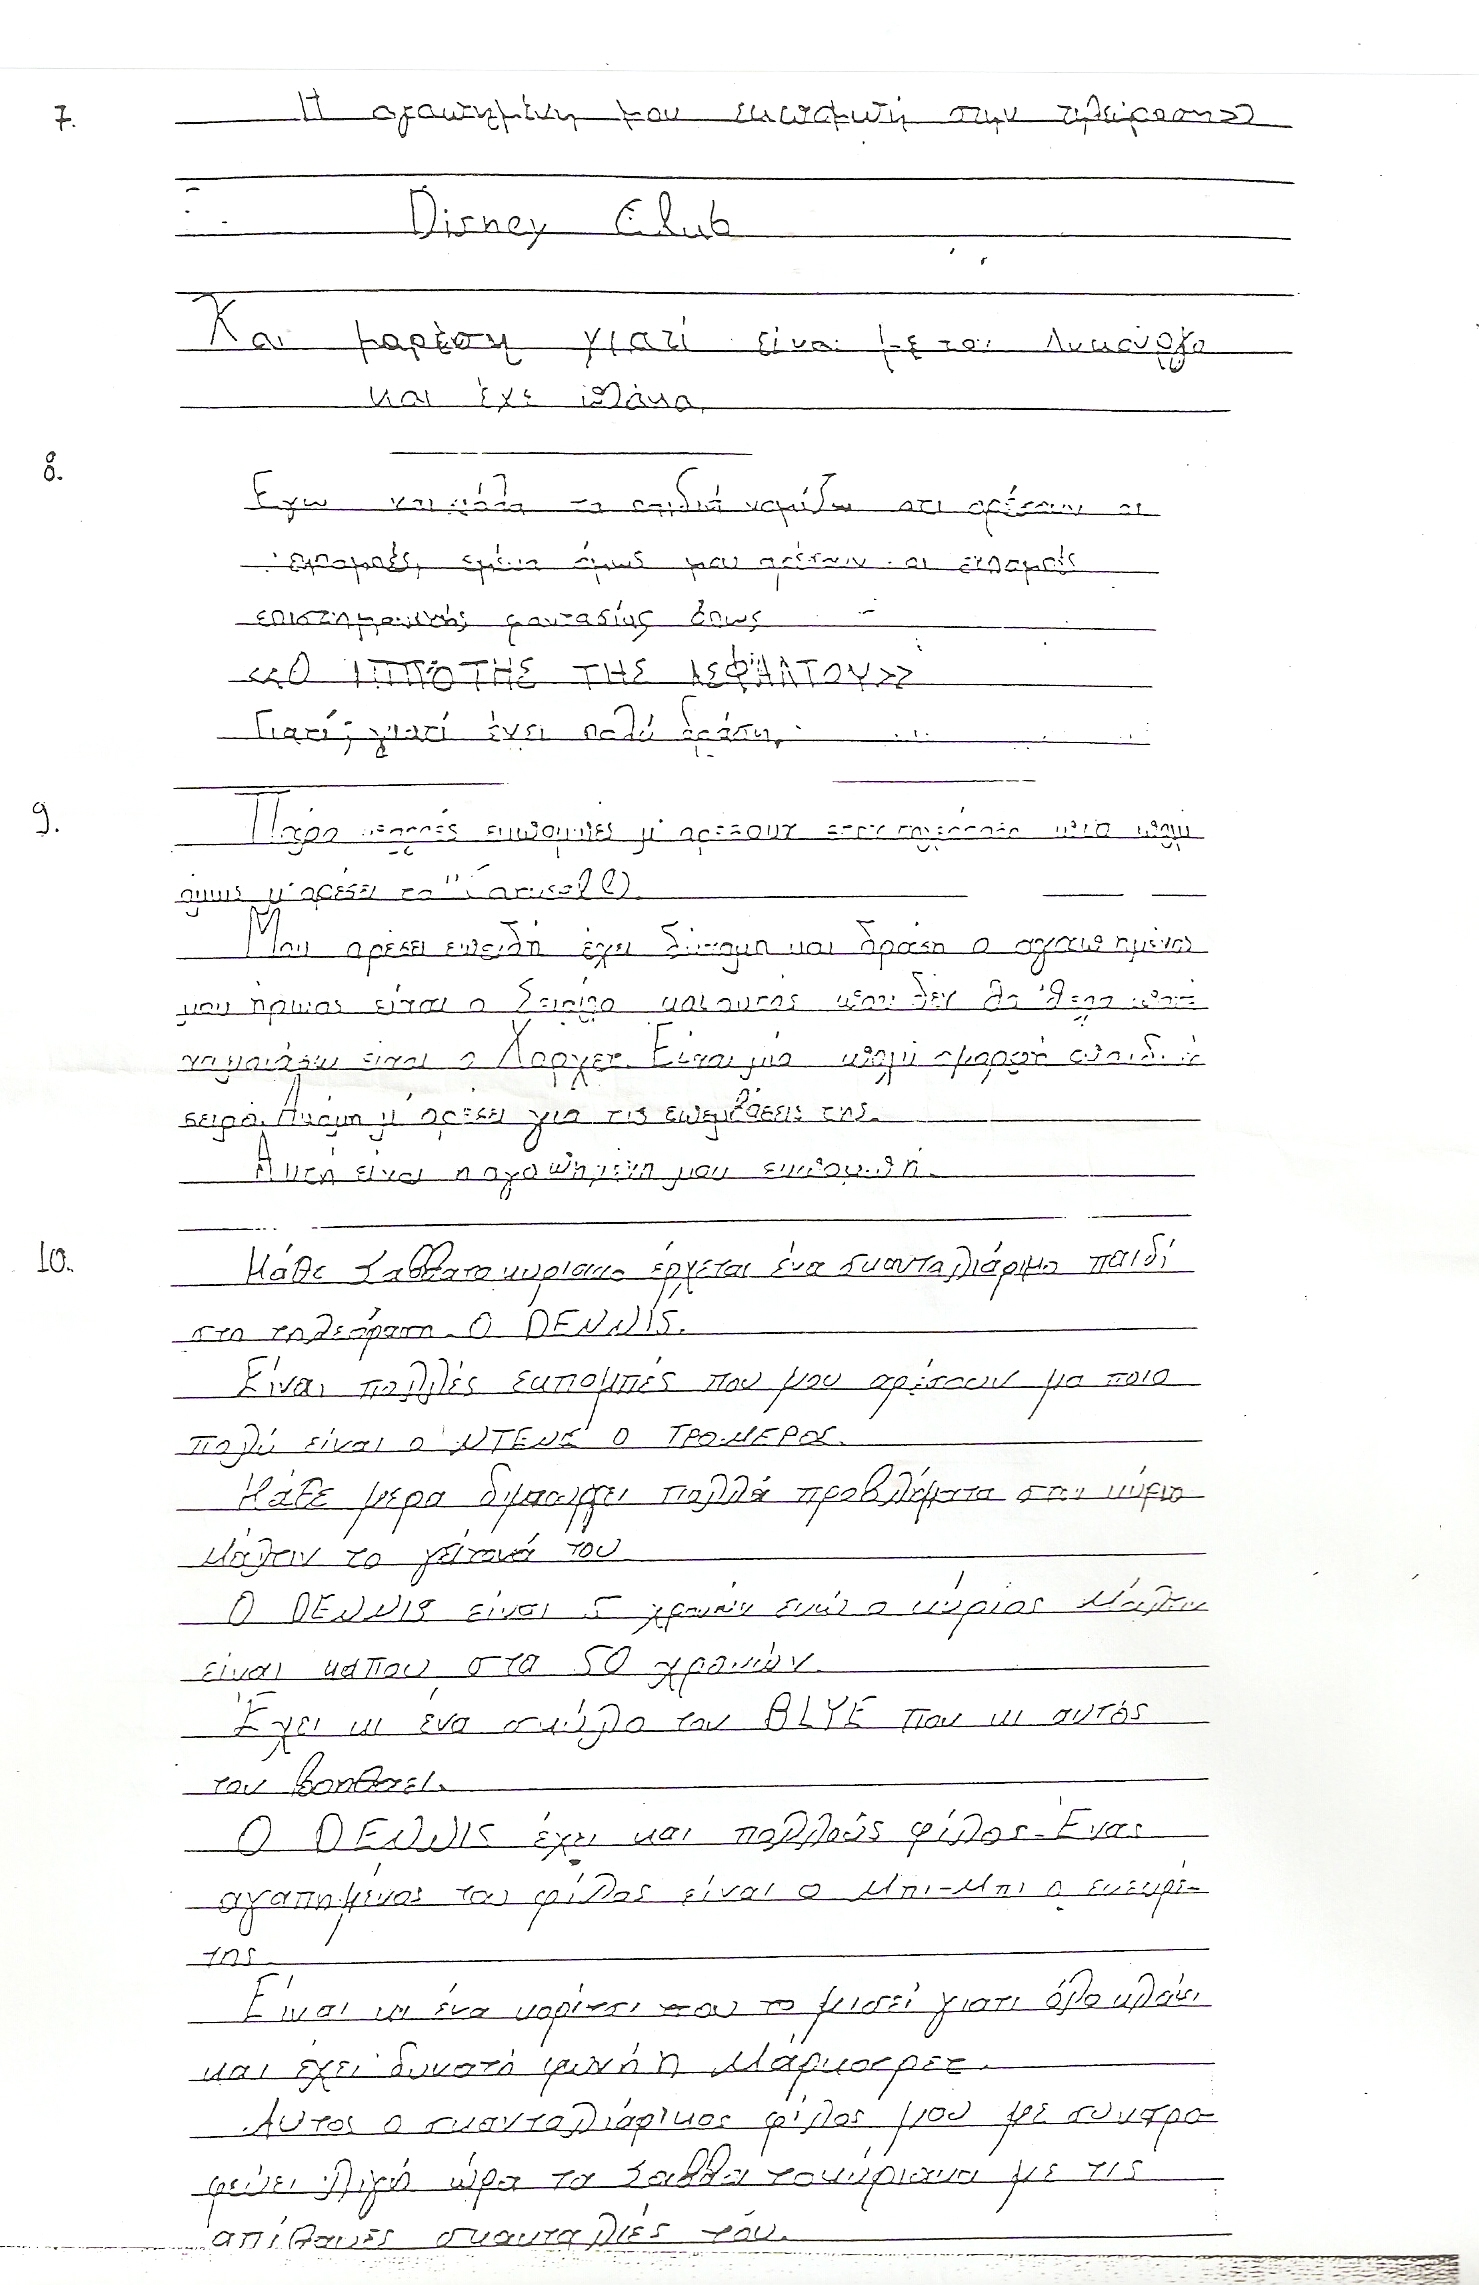 7.
Η αγαπημένη μου εκπομπή στην τηλεόραση>>
Disney Club
Και μαρέση γιατί είναι με τον Λυκούργο
και έχε πλάκα
8.
Εγώ και όλα τα παιδιά νομίζω οτι αρέσουν οι
εκπομπές, εμένα όμως μου αρέσουν οι εκπομπές
επιστημονικής φαντασίας όπως
«Ο ΙΠΠΟΤΗΣ ΤΗΣ ΑΣΦΑΛΤΟΥ»
Γιατί; γιατί έχει πολύ δράση.
9.
Πάρα πολλές εκπομπές μ' αρέσουν στην τηλεόραση πιο πολύ
όμως μ' αρέσει το
Μου αρέσει επειδή έχει δύναμη και δράση ο αγαπημένος
μου ήρωας είναι ο και αυτός που δεν θα θελα ποτέ
να μοιάσω είναι ο Είναι μία πολύ όμορφη παιδική
σειρά. Ακόμη μ' αρέσει για τις της.
Αυτή είναι η αγαπημένη μου εκπομπή.
10.
Κάθε Σαββατοκύριακο έρχεται ένα σκανταλιάρικο παιδί
στη τηλεόραση. Ο DENNIS.
Είναι πολλές εκπομπές που μου αρέσουν μα ποιο
πολύ είναι ο ΝΤΕΝΙΣ Ο ΤΡΟΜΕΡΟΣ.
Κάθε μερα πολλά προβλήματα στον κύριο
το γείτονά του
Ο DENNIS είναι 5 χρονών ενώ ο κύριος
είναι κάπου στα 50 χρονών.
Έχει κι ένα σκύλο τον BLYE που κι αυτός
τον βοηθαει.
Ο DENNIS έχει και πολλούς φίλος. Ένας
αγαπημένος του φίλος είναι ο Μπι-Μπι ο εφευρέ-
της.
Είναι κι ένα κορίτσι που το μισεί γιατι όλο κλάιει
και έχει δυνατή φωνή η Μάργκαρετ.
Αυτος ο σκανταλιάρικος φίλος μου με συντρο-
φεύει λιγή ώρα τα Σαββατοκύριακα με τις
απίθανες σκανταλιές του.